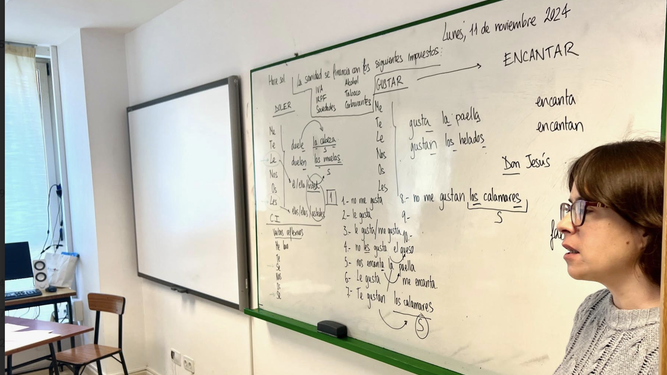 Lunes, 11 de noviembre 2024
La sanidad se financia con los siguientes impuestos:
IVA Alcohol
IRPF Tabaco
Sociedades Carburantes
DOLER
GUSTAR
ENCANTAR
Me
Te
Le
Nos
Os
Les
C.I.
duele la cabeza
S
duelen las muelas
S
Me
Te
Le
Nos
Os
Les
gusta la paella
gustan los helados
encanta
encantan
Don Jesús
1- no me gusta
2- le gusta
3- le gusta/me gusta
4- no les gusta el queso
5- nos encanta la paella
6- Le gusta me encanta
7- Te gustan los calamares
S
8- no me gustan los calamares
S
9-
Verbos
Me
Te
Se
Nos
Os
Se